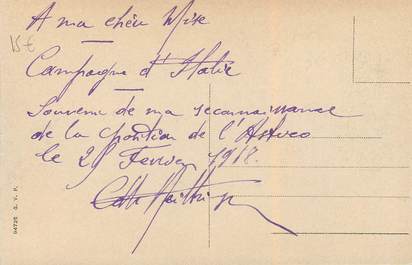 15 €
A ma chère Mise
Campagne d'Italie
Souvenir de ma reconnaissance
de la position de l'
le 2 Février 1918.
94725 G. V. P.